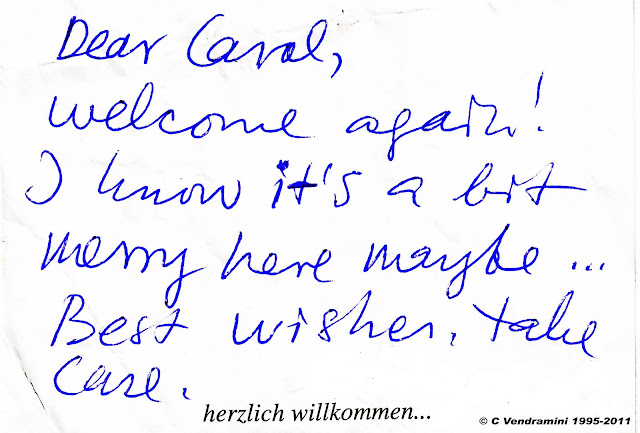 Dear Carol,
welcome again!
I know it's a bit
messy here maybe ...
Best wishes. take
care.
herzlich willkommen...
© C Vendramini 1995-2011